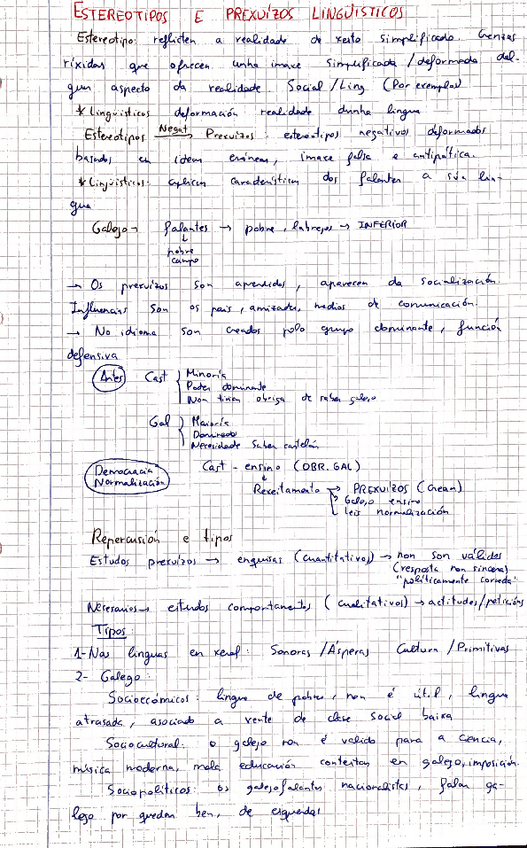 ESTEREOTIPOS E PREXUÍZOS LINGÜISTICOS
Estereotipo: reflicten a realidade de xeito simplificado. Crenzas
ríxidas que ofrecen unha imaxe simplificada / deformada dal-
gun aspecto da realidade. Social / Ling (Por exemplos)
* Linguisticos deformación realidade dunha lingua
Estereotipos Negat Prexuizos: estereotipos negativos deformados
basados en ideas erróneas, imaxe falsa e antipática.
* Lingüísticos: aplican características dos falantes a súa lin-
gua
Galego → falantes → pobre, labregos → INFERIOR
pobre
campo
→ Os prexuizos son aprendidos, aparecen da socialización.
Influencias son os pais, amizades, medios de comunicación.
→ No idioma son creados polo grupo dominante, función
defensiva
Antes Cast { Minoría
Poder dominante
Non tiñan obriga de saber galego
Gal { Maioría
Dominado
Necesidade saber castelán
Democracia Normalización Cast - ensino (OBR. GAL)
Rexeitamento → PREXUÍZOS (Crean)
Galego ensino
Leis normalización
Repercusión e tipos
Estudos prexuizos → enquisas (cuantitativos) → non son válidos
(resposta non sincera)
"politicamente correcta"
Necesarios → estudos comportamentos (cualitativos) → actitudes/
Tipos:
1- Nas linguas en xeral: Sonoras / Ásperas Cultura / Primitivas
2- Galego:
Socioecómicos: lingua de pobres, non é útil, lingua
atrasada, asociado a xente de clase social baixa
Sociocultural: o galego non é valido para a ciencia,
música moderna, mala educación contestar en galego, imposición.
Sociopolíticos: os galegofalantes nacionalistas, falan ga-
lego por quedar ben, de esquerdas